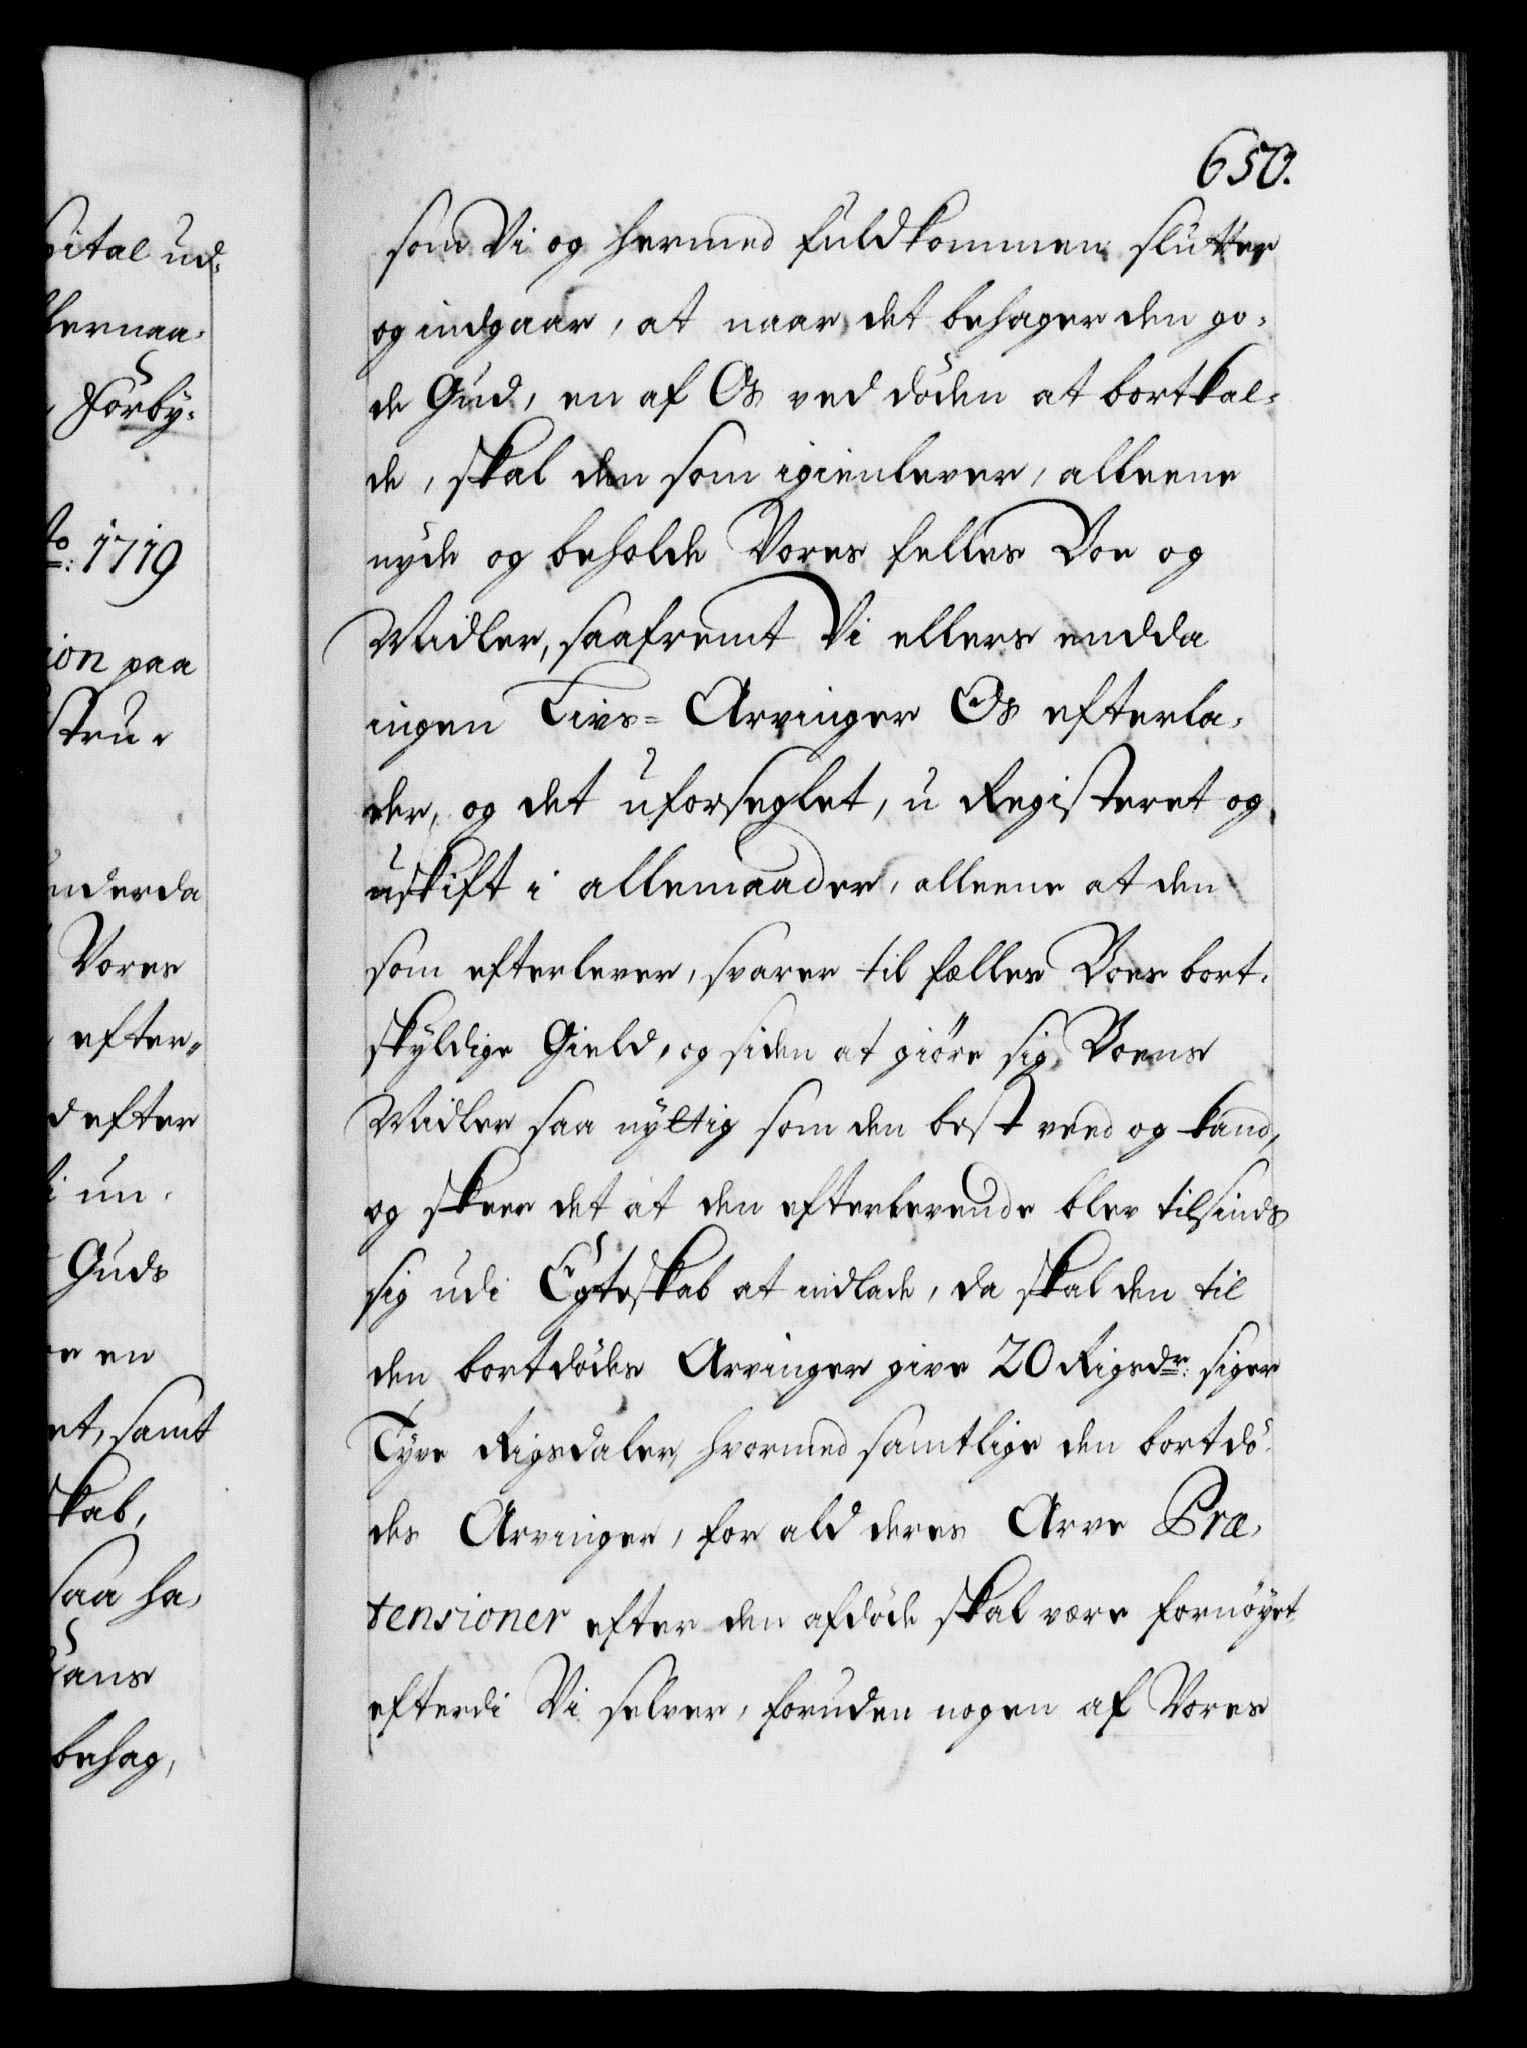 650.
som Vi og hermed fuldkommen slutter
og indgaar, at naar det behager den go-
de Gud, en af Os ved döden at bortkal-
de, skal den som igienlever, alleene
nyde og beholde Vores felles Boe og
Midler, saafremt Vi ellers endda
ingen Livs-Arvinger Os efterla-
der, og det uforseglet, u Registeret og
uskift i allemaader, alleene at den
som efterlever, svarer til fælles Boes bort-
skyldige Gield, og siden at giöre sig Boens
Midler saa nyttig som den best veed og kand,
og skeer det at den efterlevende blev tilsinds
sig udi Egteskab at indlade, da skal den til
den bortdödes Arvinger give 20 Rigsdr: siger
Tyve Rigsdaler, hvormed samtlige den bortdö-
des Arvinger, for ald deres Arve Præ-
tensioner efter den afdöde skal være fornöyet
efterdi Vi selver, foruden nogen af Vores
pital ud-
lernaa-
Förby-
to: 1719
ion paa
stru-
nderda
Vores
efter-
d efter
i un-
Guds
en
et, samt
skab,
saa ha-
hans
behag,